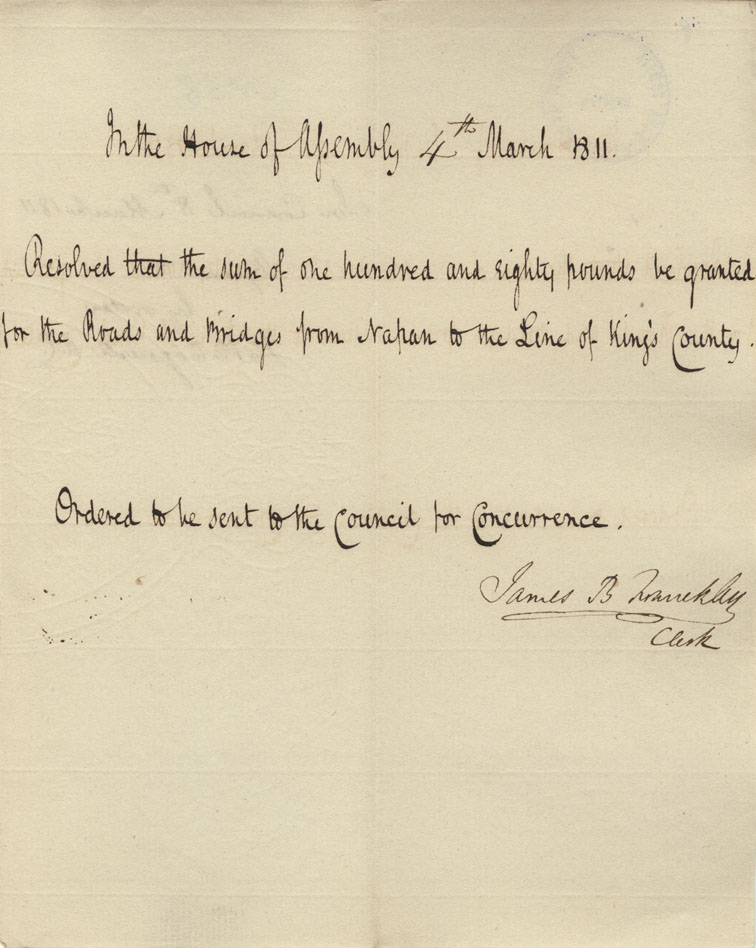 In the House of Assembly 4th March 1811.
Resolved that the sum of one hundred and eighty pounds be granted
for the Roads and Bridges from Napan to the Line of King's County.
Ordered to be sent to the Council for Concurrence.
James B Franckley
Clerk